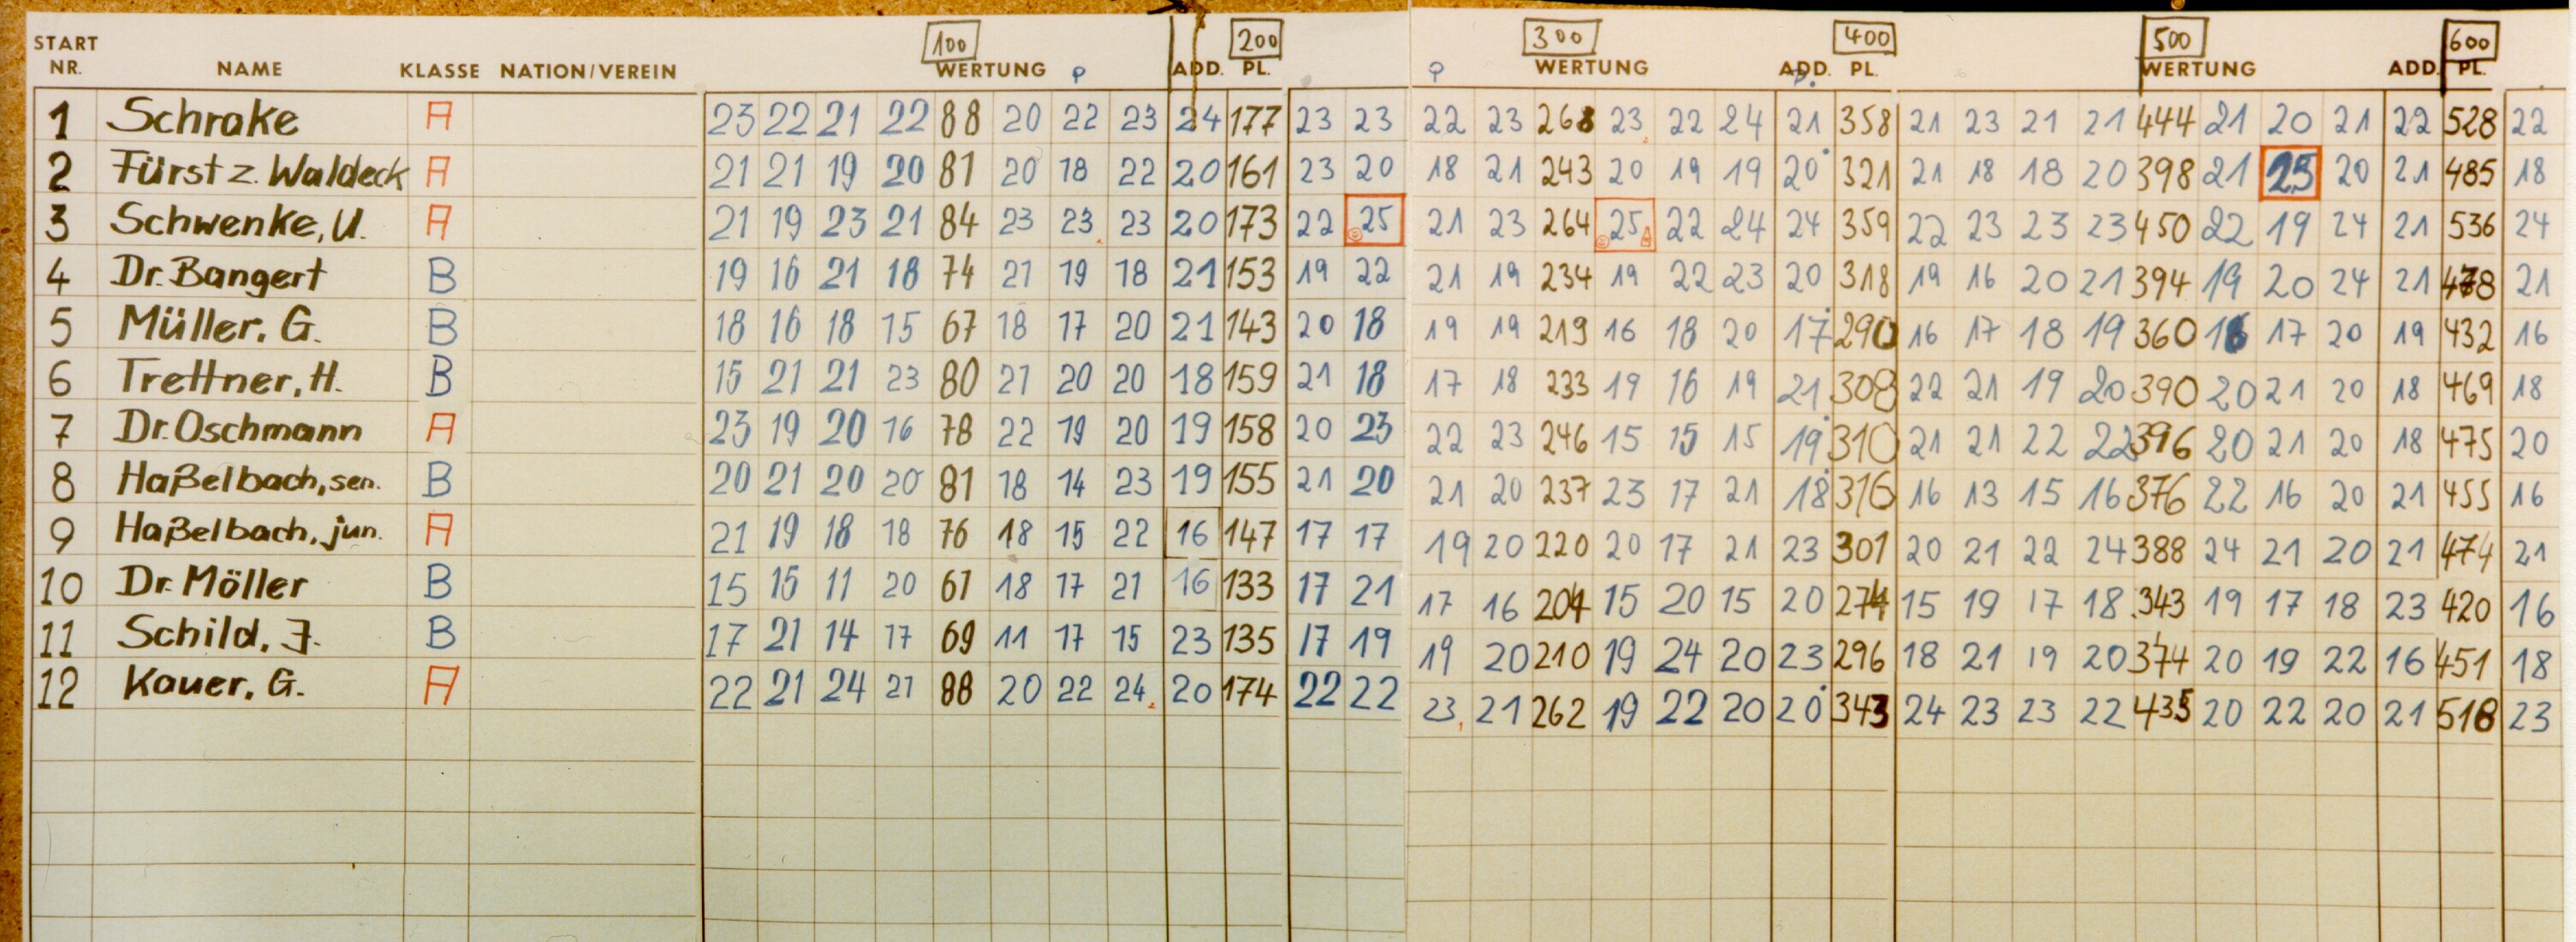 100 200 300 400 500 600
START NR. NAME KLASSE NATION/VEREIN WERTUNG P ADD. PL. P WERTUNG ADD. P. PL. WERTUNG ADD. PL.
1 Schrake A 23 22 21 22 88 20 22 23 24 177 23 23 22 23 268 23 22 24 21 358 21 23 21 21 444 21 20 21 22 528 22
2 Fürst z. Waldeck A 21 21 19 20 81 20 18 22 20 161 23 20 18 21 243 20 19 19 20 321 21 18 18 20 398 21 25 20 21 485 18
3 Schwenke, U. A 21 19 23 21 84 23 23 23 20 173 22 25 21 23 264 25 22 24 24 359 22 23 23 23 450 22 19 24 21 536 24
4 Dr. Bangert B 19 16 21 18 74 21 19 18 21 153 19 22 21 19 234 19 22 23 20 318 19 16 20 21 394 19 20 24 21 478 21
5 Müller, G. B 18 16 18 15 67 18 17 20 21 143 20 18 19 19 219 16 18 20 17 290 16 17 18 19 360 16 17 20 19 432 16
6 Trettner, H. B 15 21 21 23 80 21 20 20 18 159 21 18 17 18 233 19 16 19 21 308 22 21 19 20 390 20 21 20 18 469 18
7 Dr. Oschmann A 23 19 20 16 78 22 19 20 19 158 20 23 22 23 246 15 15 15 19 310 21 21 22 22 396 20 21 20 18 475 20
8 Haßelbach, sen. B 20 21 20 20 81 18 14 23 19 155 21 20 21 20 237 23 17 21 18 316 16 13 15 16 376 22 16 20 21 455 16
9 Haßelbach, jun. A 21 19 18 18 76 18 15 22 16 147 17 17 19 20 220 20 17 21 23 301 20 21 22 24 388 24 21 20 21 474 21
10 Dr. Möller B 15 15 11 20 61 18 17 21 16 133 17 21 17 16 204 15 20 15 20 274 15 19 17 18 343 19 17 18 23 420 16
11 Schild, J. B 17 21 14 17 69 11 17 15 23 135 17 19 19 20 210 19 24 20 23 296 18 21 19 20 374 20 19 22 16 451 18
12 Kauer, G. A 22 21 24 21 88 20 22 24 20 174 22 22 23 21 262 19 22 20 20 343 24 23 23 22 435 20 22 20 21 518 23